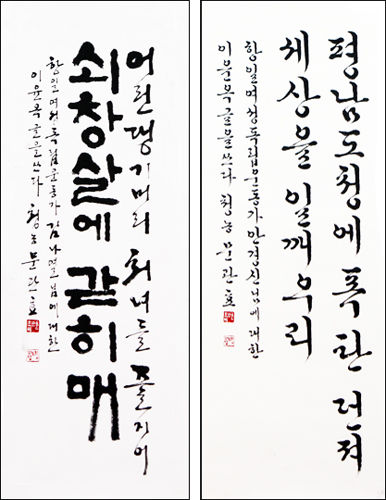 어린 댕기머리 처녀들 줄지어
쇠창살에 갇히매
항일여성독립운동가 김나열 님에 대한
이윤옥 글을 쓰다 청농 문관효
평남도청에 폭탄 던져
세상을 일깨우리
항일여성독립운동가 안경신 님에 대한
이윤옥 글을 쓰다 청농 문관효